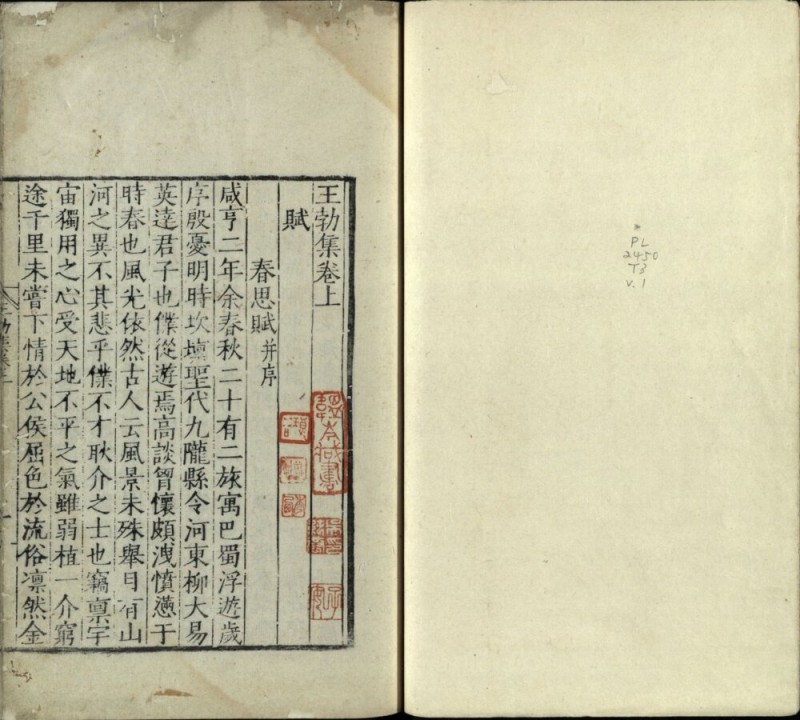 王勃集卷上
賦
春思賦 并序
咸亨二年余春秋二十有二旅寓巴蜀浮遊歲
序殷憂明時坎壈聖代九隴縣令河東柳大易
英達君子也僕從遊焉高談胷懷頗洩憤懣于
時春也風光依然古人云風景未殊舉目有山
河之異不其悲乎僕不才耿介之士也竊禀宇
宙獨用之心受天地不平之氣雖弱植一介窮
途千里未嘗下情於公侯屈色於流俗凛然金
*
PL
2450
T3
v. 1